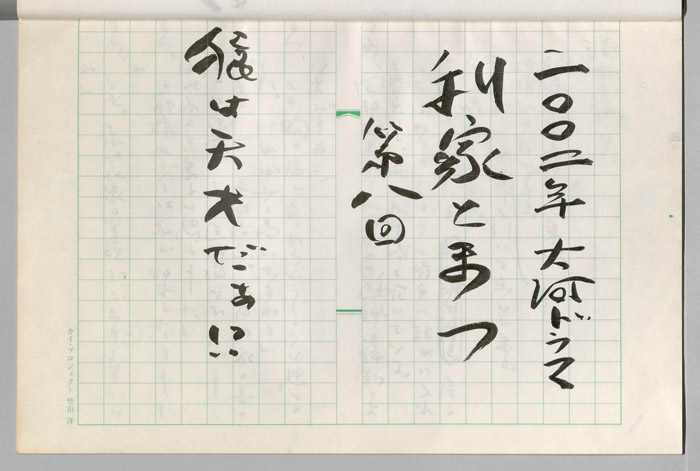 二〇〇二年 大河ドラマ
利家とまつ
第八回
俺は天才だあ!!
カイ・プロジェクト 竹山 洋